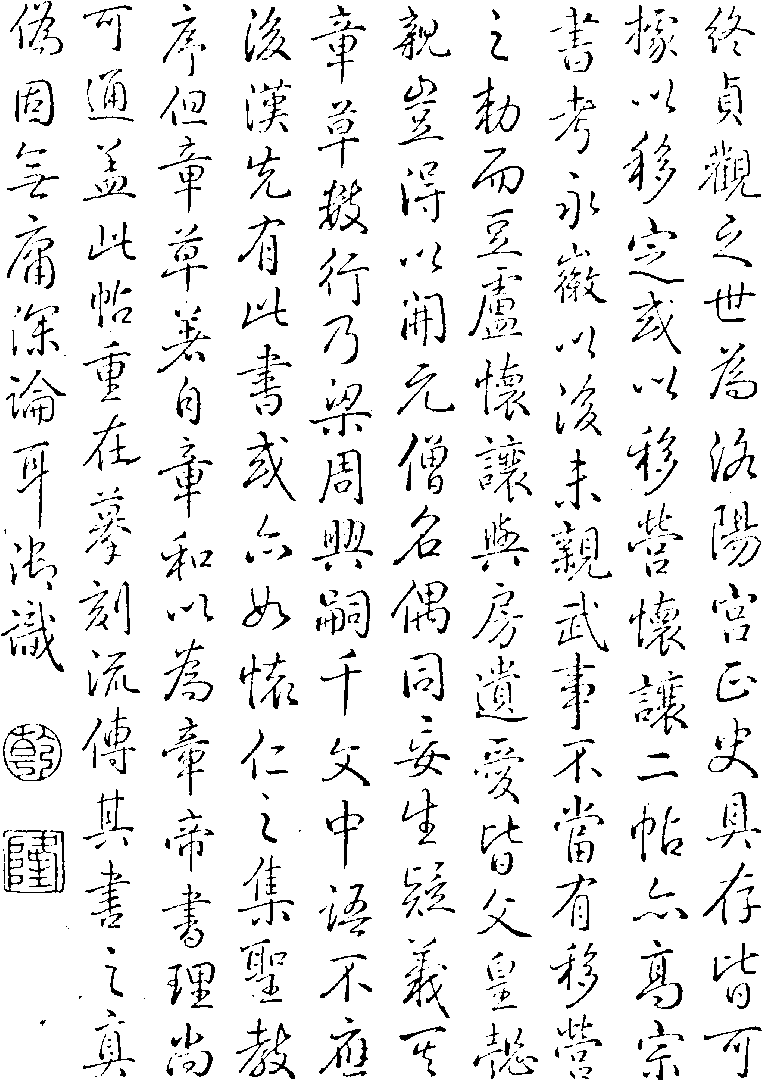 終貞觀之世為洛陽宮正史具存皆可
據以移定或以移營懷讓二帖亦高宗
書考永徽以後未親武事不當有移營
之勅而豆盧懷讓與房遺愛皆父皇懿
親豈得以開元僧名偶同妄生疑義至
章草數行乃梁周興嗣千文中語不應
後漢先有此書或亦如懷仁之集聖教
序但章草著自章和以為章帝書理尚
可通盖此帖重在摹刻流傳其書之真
偽固無庸深論耳御識
乾
隆